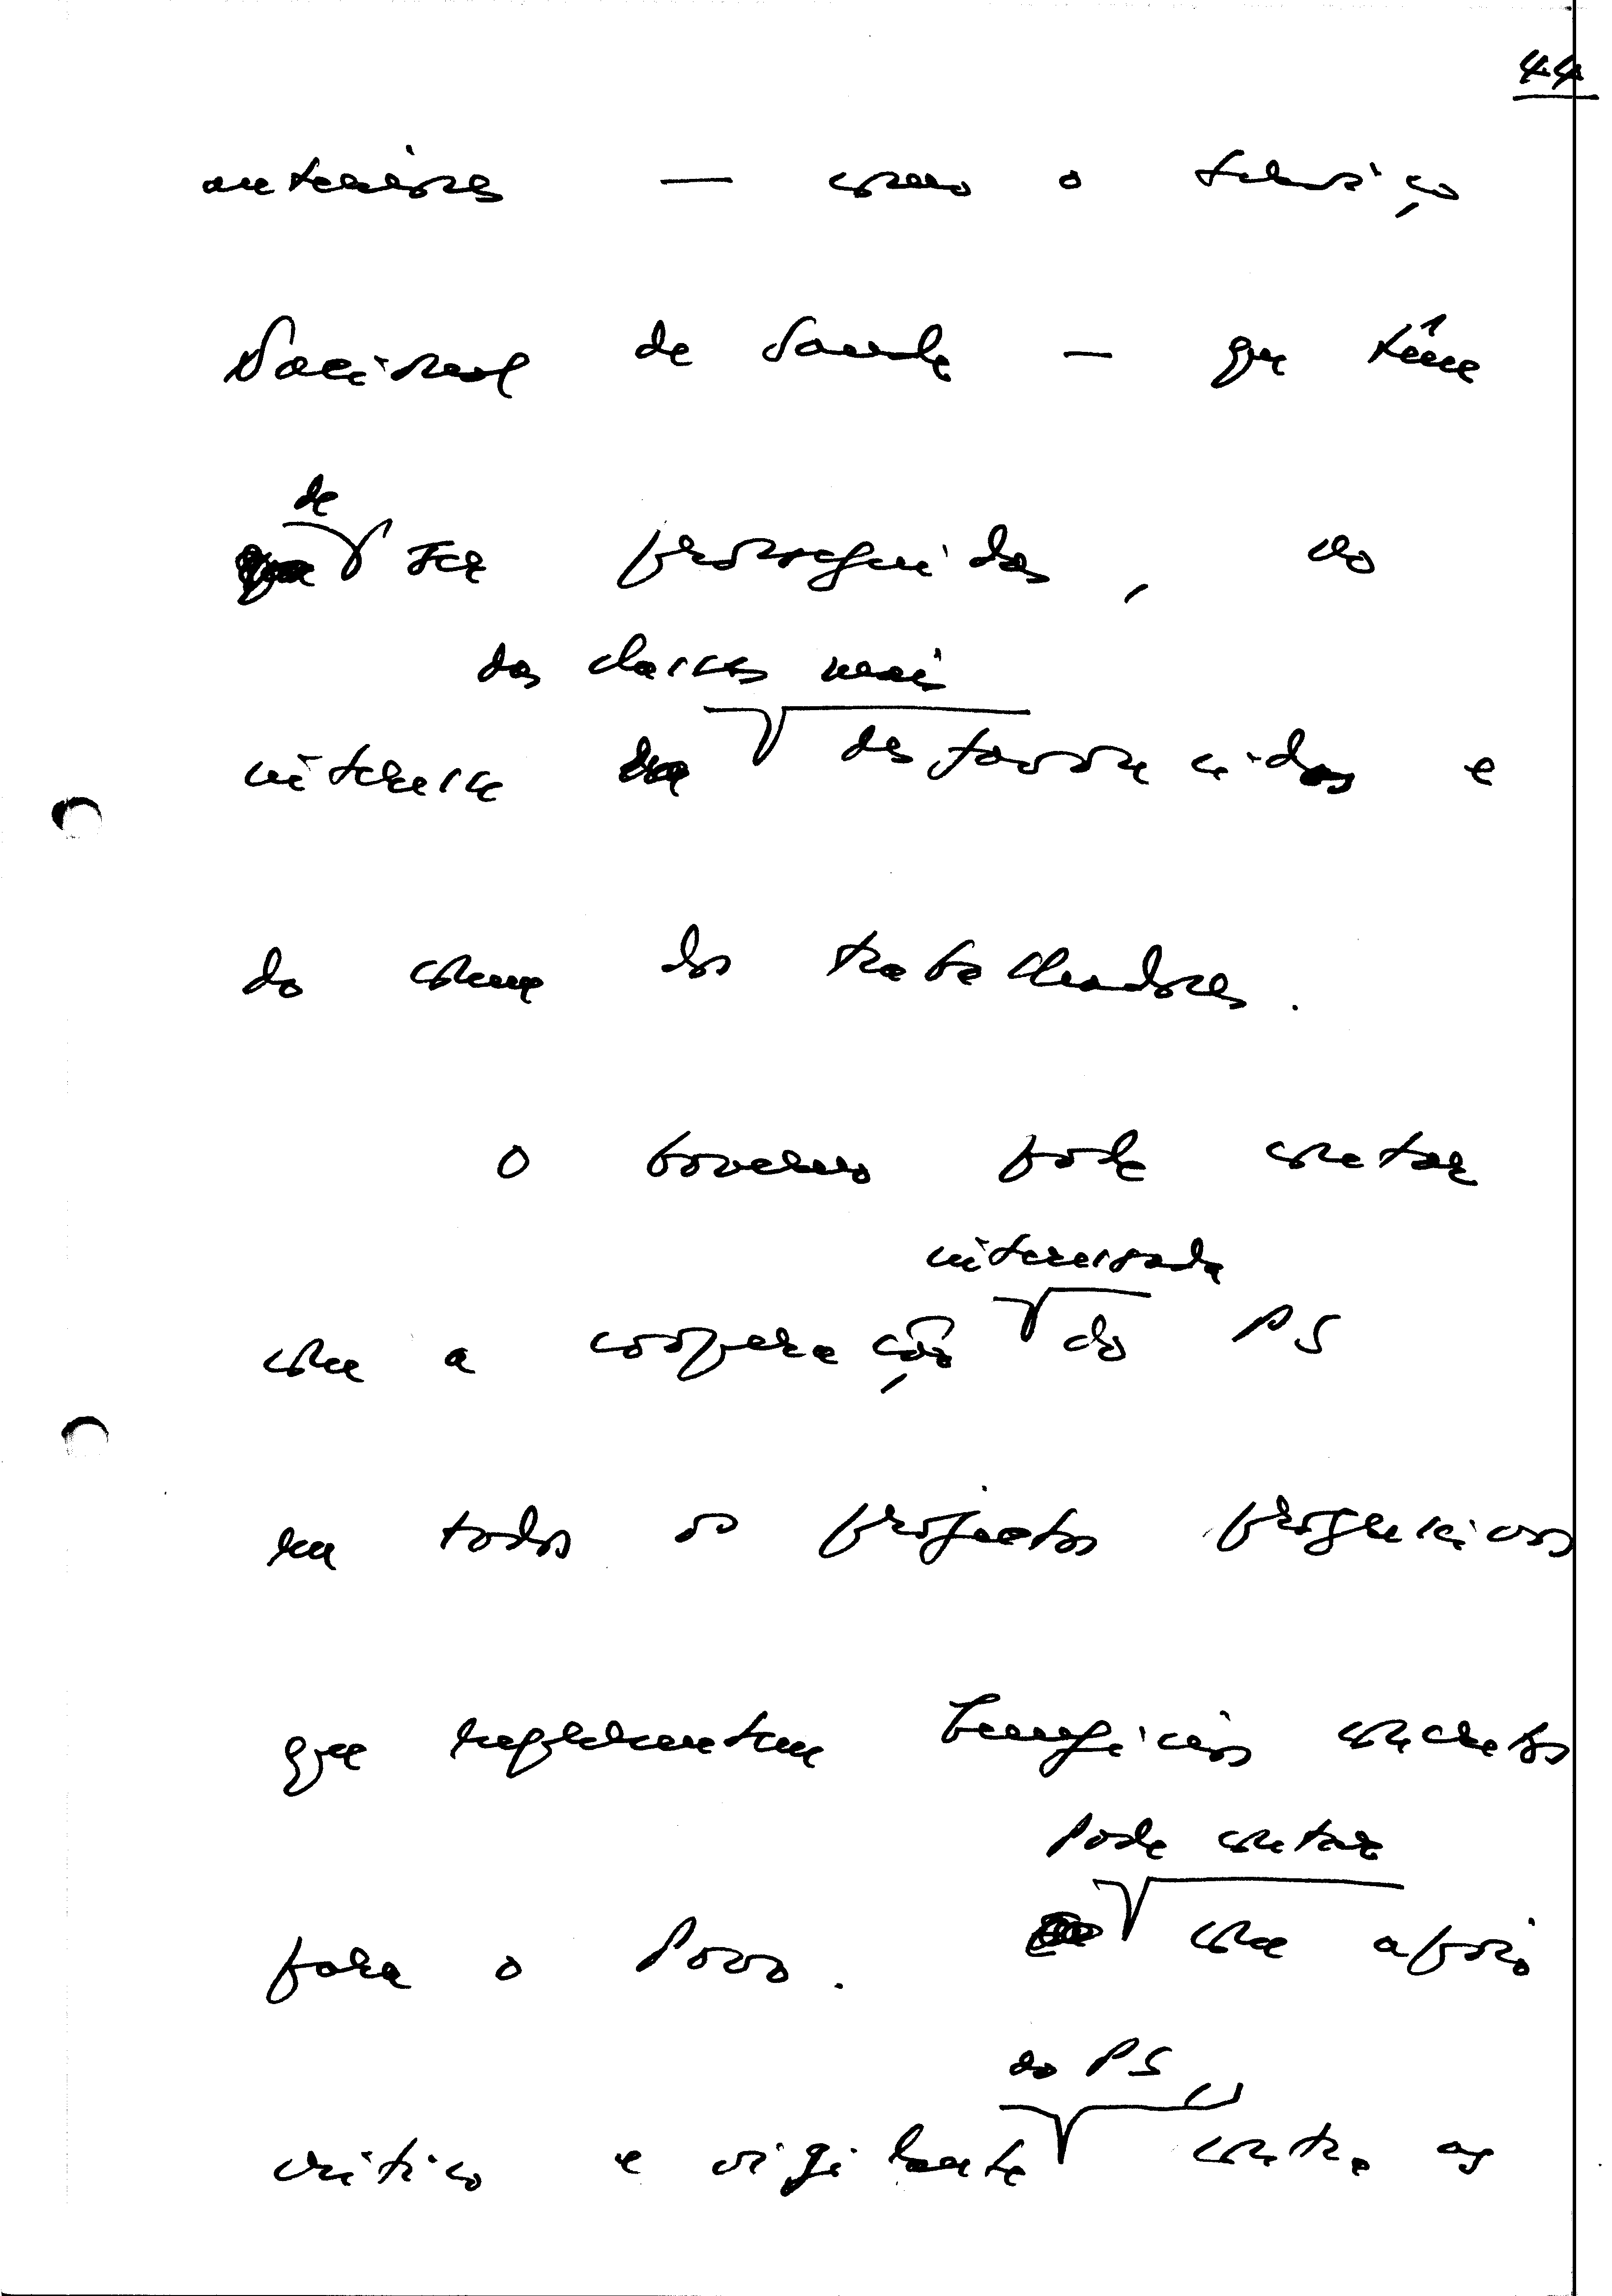 44
anteriores — como o Serviço
Nacional de Saude — que têm
de
ser prosseguidas, no
das classes mais
interesse desfavorecidas e
do comum dos trabalhadores.
O Governo pode contar
interessada
com a cooperação do PS
em todos os projectos progressivos
que representem benefícios concretos
Pode contar
para o Povo. com apoio
do PS
crítico e vigilante contra as